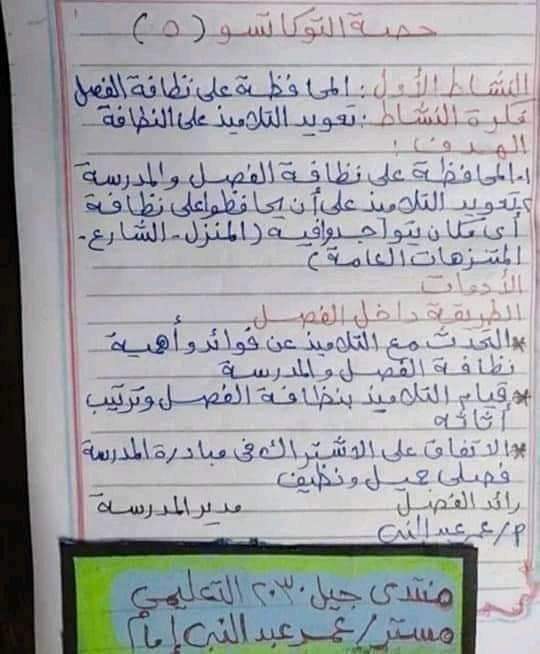 حصة التوكاتسو (٥)
النشاط الأول: المحافظة على نظافة الفصل
فكرة النشاط: تعويد التلاميذ على النظافة
الهدف:
١- المحافظة على نظافة الفصل والمدرسة
٢- تعويد التلاميذ على أن يحافظوا على نظافة
أى مكان يتواجدوا فيه (المنزل - الشارع -
المتنزهات العامة)
الأدوات
الطريقة داخل الفصل
* التحدث مع التلاميذ عن فوائد وأهمية
نظافة الفصل والمدرسة
* قيام التلاميذ بنظافة الفصل وترتيب
أثاثه
* الاتفاق على الاشتراك فى مبادرة المدرسة
فصلى جميل ونظيف
رائد الفصل مدير المدرسة
م/ عمر عبد النبى
منتدى جيل ٢٠٣٠ التعليمي
مستر/ عمر عبد النبى إمام